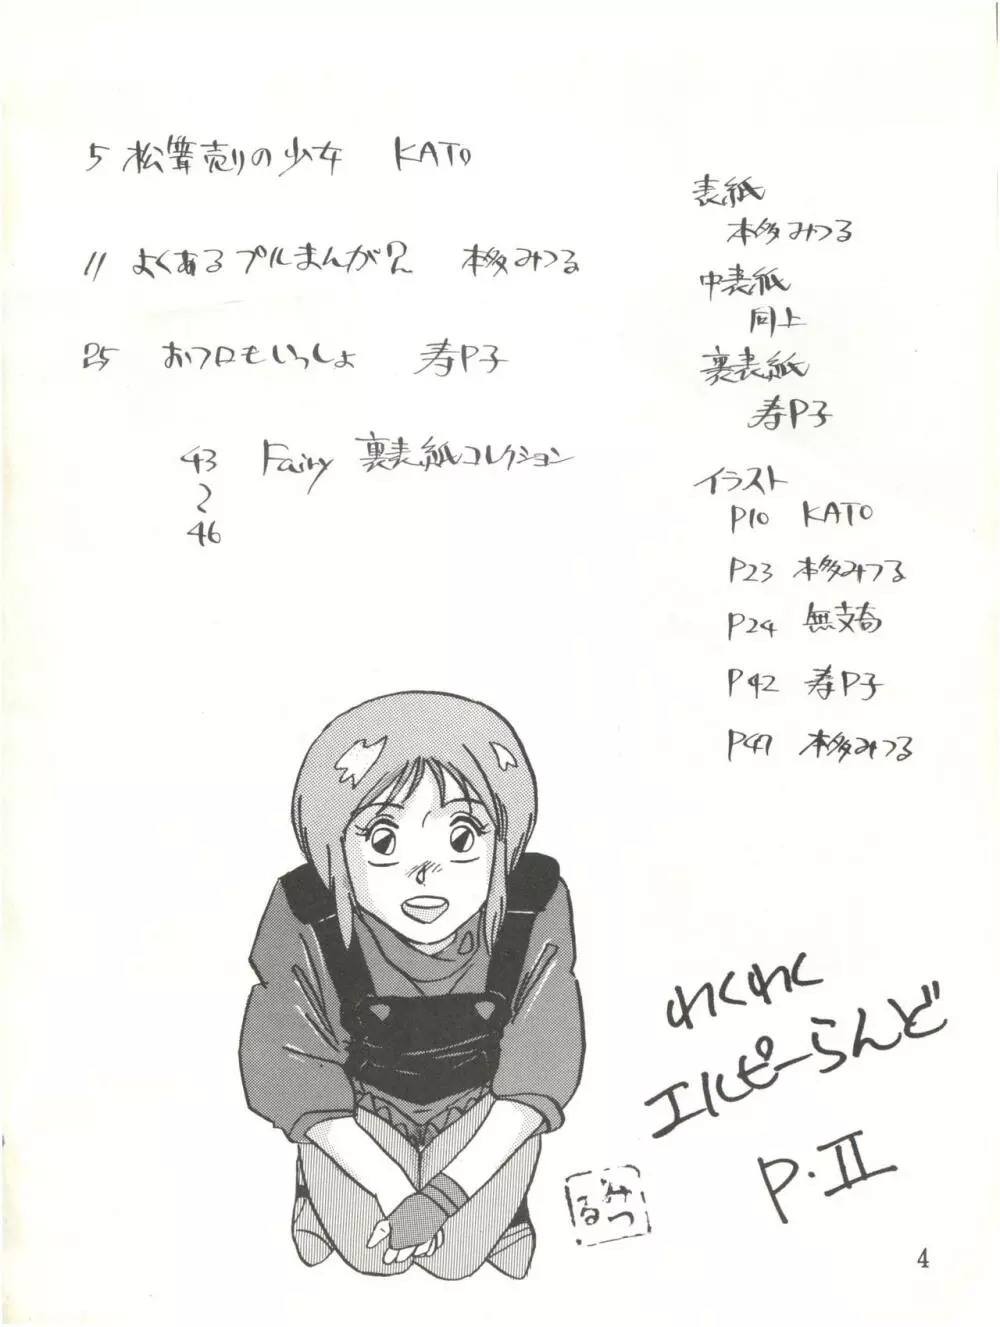 5 松茸売りの少女 KATO
11 よくあるプルまんが? 本多みつる
25 おフロもいっしょ 寿P子
43
〜
46
Fairy 裏表紙コレクション
表紙
本多みつる
中表紙
同上
裏表紙
寿P子
イラスト
P10 KATO
P23 本多みつる
P24 無支奇
P42 寿P子
P47 本多みつる
わくわく
エルピーらんど
P・II
みつる
4